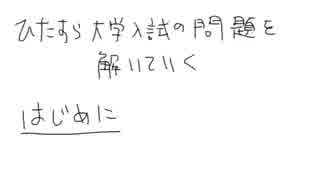 ひたすら大学入試の問題を
解いていく
はじめに